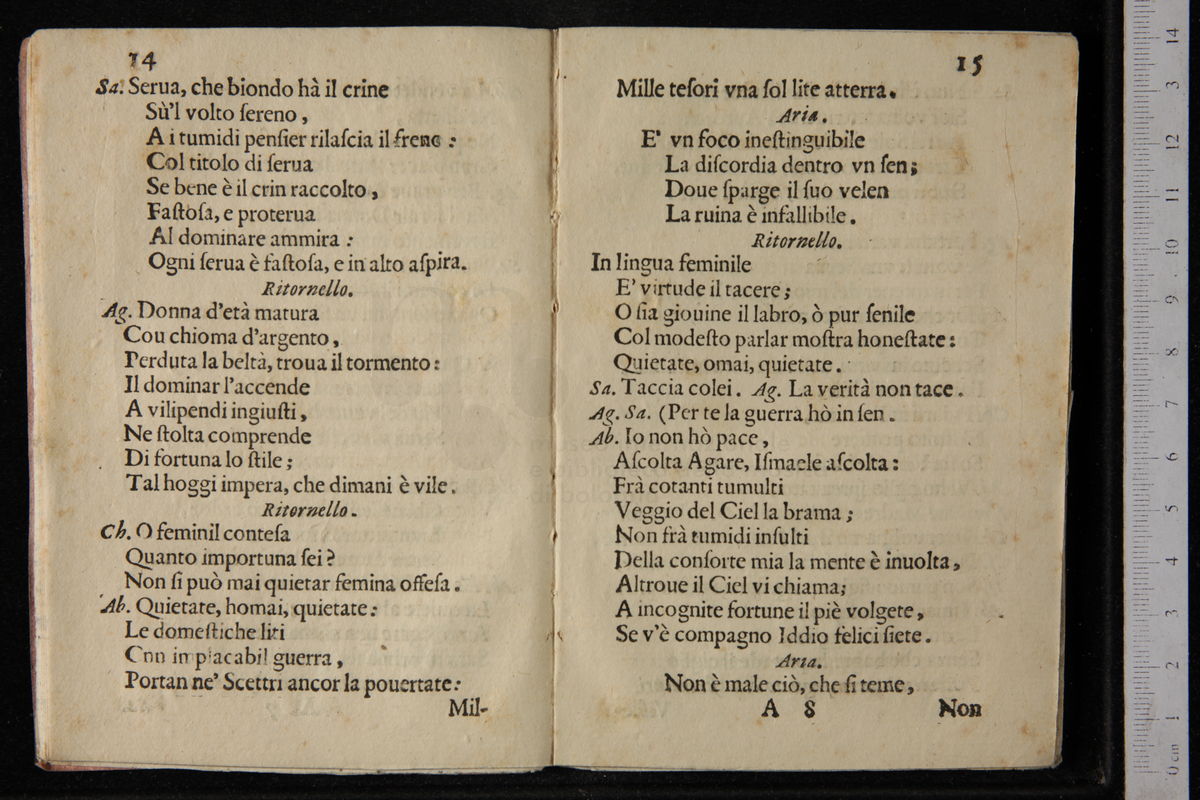 14
Sa. Serua, che biondo hà il crine
Sù'l volto ſereno,
A i tumidi penſier rilaſcia il freno :
Col titolo di ſerua
Se bene è il crin raccolto,
Faſtoſa, e proterua
Al dominare ammira :
Ogni ſerua è faſtoſa, e in alto aſpira.
Ritornello.
Ag. Donna d'età matura
Cou chioma d'argento,
Perduta la beltà, troua il tormento:
Il dominar l'accende
A vilipendi ingiuſti,
Ne ſtolta comprende
Di fortuna lo ſtile;
Tal hoggi impera, che dimani è vile.
Ritornello.
Ch. O feminil conteſa
Quanto importuna ſei?
Non ſi può mai quietar femina offeſa.
Ab. Quietate, homai, quietate:
Le domeſtiche liti
Cnn implacabil guerra,
Portan ne' Scettri ancor la pouertate:
Mil-
15
Mille teſori vna ſol lite atterra.
Aria.
E' vn foco ineſtinguibile
La diſcordia dentro vn ſen;
Doue ſparge il ſuo velen
La ruina è infallibile.
Ritornello.
In lingua feminile
E' virtude il tacere;
O ſia giouine il labro, ò pur ſenile
Col modeſto parlar moſtra honeſtate:
Quietate, omai, quietate.
Sa. Taccia colei. Ag. La verità non tace.
Ag. Sa. (Per te la guerra hò in ſen.
Ab. Io non hò pace,
Aſcolta Agare, Iſmaele aſcolta:
Frà cotanti tumulti
Veggio del Ciel la brama;
Non frà tumidi inſulti
Della conſorte mia la mente è inuolta,
Altroue il Ciel vi chiama;
A incognite fortune il piè volgete,
Se v'è compagno Iddio felici ſiete.
Aria.
Non è male ciò, che ſi teme,
A 8 Non